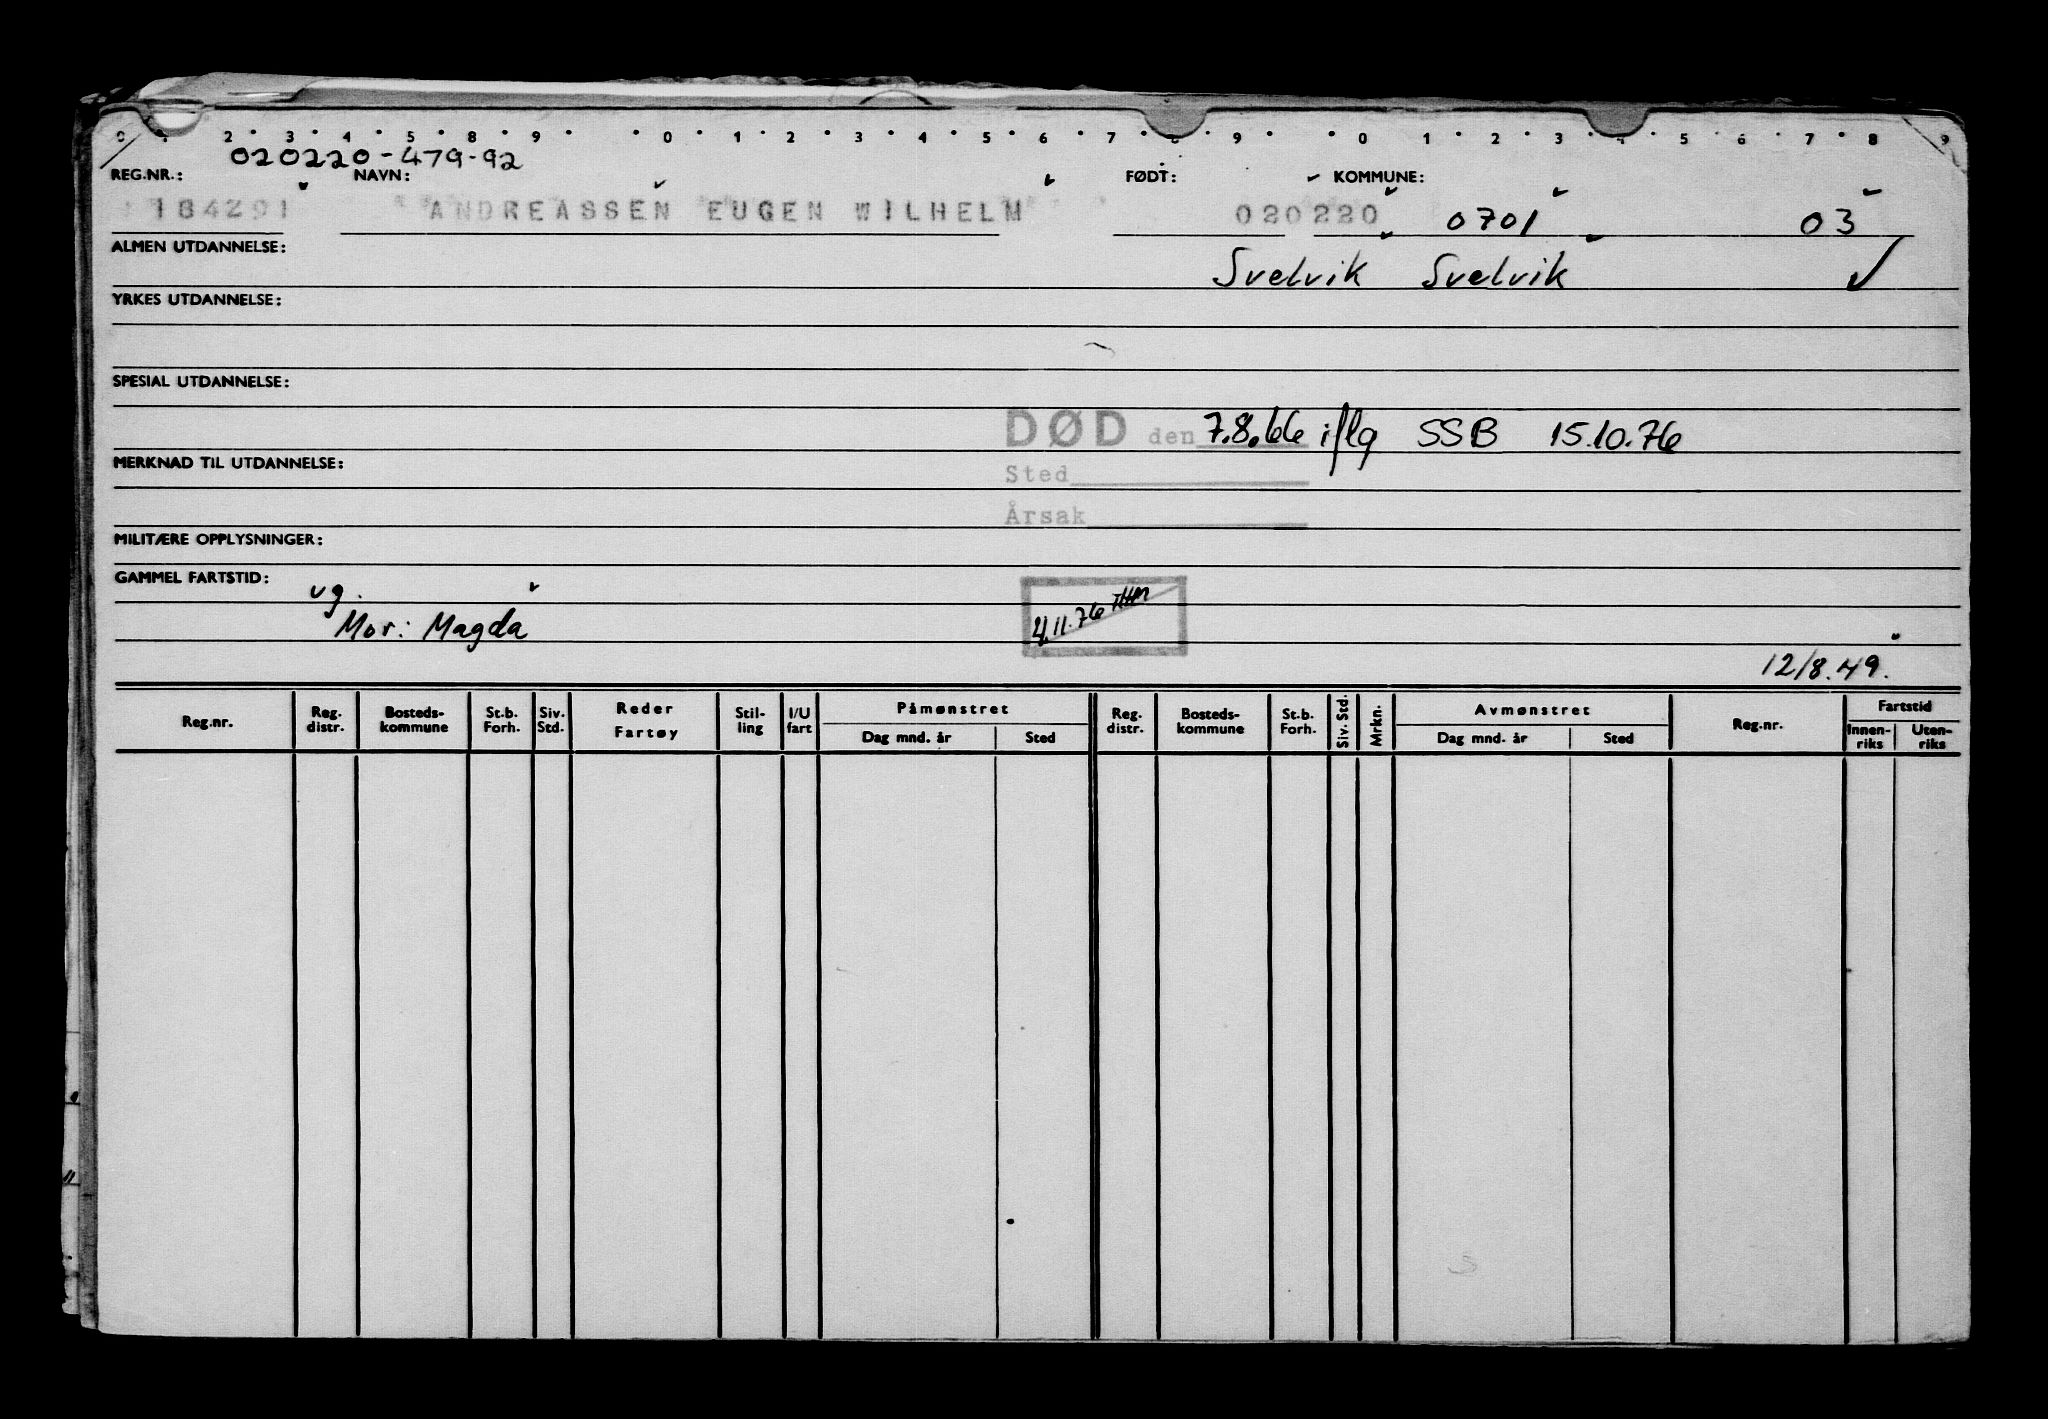 0 1 2 3 4 5 8 9 0 1 2 3 4 5 6 7 8 9 0 1 2 3 4 5 6 7 8 9
020220-479-92
REG.NR.: NAVN: FØDT: KOMMUNE:
184291 ANDREASSEN EUGEN WILHELM 020220 0701 03
ALMEN UTDANNELSE: Svelvik Svelvik
YRKES UTDANNELSE:
SPESIAL UTDANNELSE:
DØD den 7.8.66 iflg SSB 15.10.76
MERKNAD TIL UTDANNELSE:
Sted
Årsak
MILITÆRE OPPLYSNINGER:
GAMMEL FARTSTID:
vg.
Mor: Magda
4.11.76
12/8.49.
Reg.nr. Reg. distr. Bosteds- kommune St.b. Forh. Siv. Std. Reder Fartøy Stil- ling I/U fart Påmønstret Dag mnd. år Sted Reg. distr. Bosteds- kommune St.b. Forh. Siv. Std. Mrkn. Avmønstret Dag mnd. år Sted Reg.nr. Fartstid Innen- riks Uten- riks